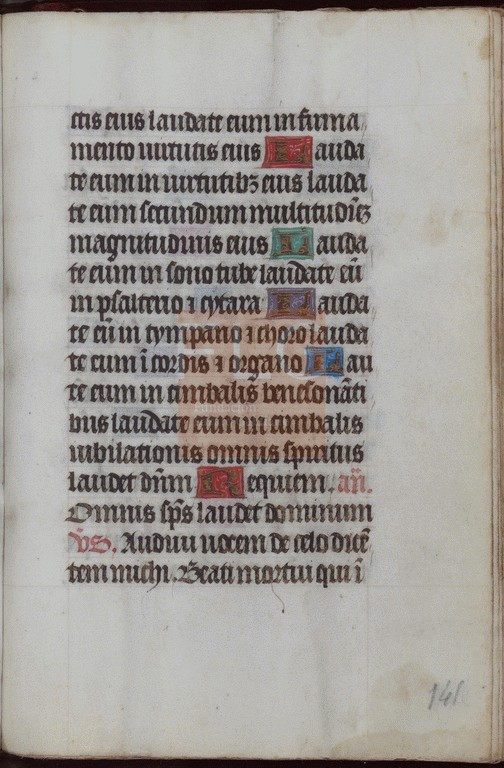 ctis eius laudate eum in firma
mento uirtutis eius Lauda
te eum in uirtutibꝫ eius lauda
te eum secundum multitudinē
magnitudinis eius Lauda
te eum in sono tube laudate eū
in psalterio ⁊ cytara Lauda
te eū in tympano ⁊ choro lauda
te eum ī cordis ⁊ organo Lau
te eum in cimbalis benesonāti
bus laudate eum in cimbalis
iubilationis omnis spiritus
laudet dn̄m Requiem. an̄.
Omnis sp̄s laudet dominum
vs̄. Audiui uocem de celo dicē
tem michi. Beati mortui qui ī
141